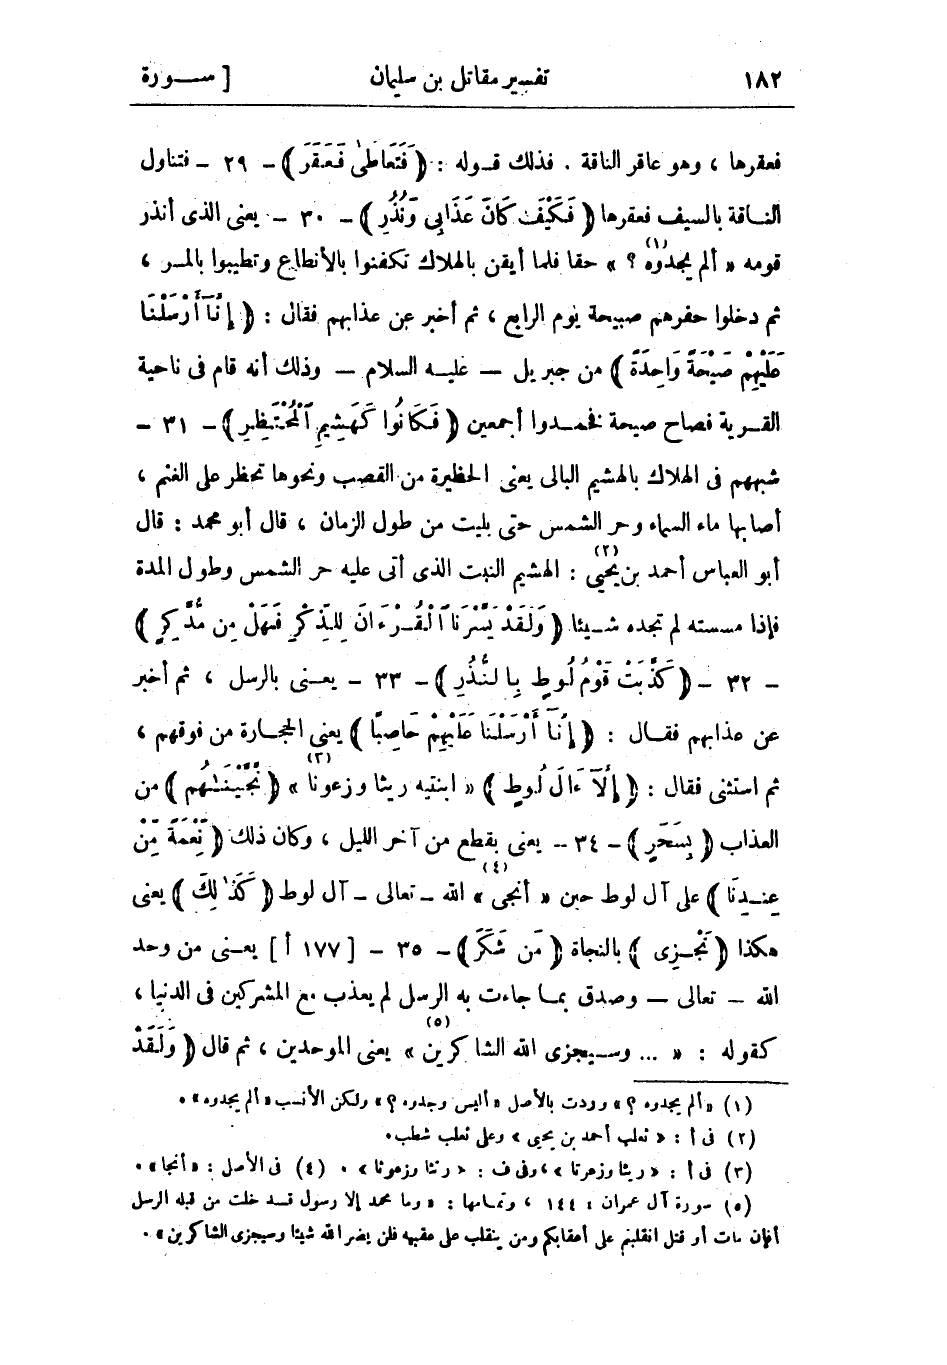 ١٨٢ تفسير مقاتل بن سليمان [ ســورة
فعقرها ، وهو عاقر الناقة . فذلك قـوله : ( فَتَعَاطَىٰ فَعَقَرَ ) - ٢٩ - فتناول
النـاقة بالسيف فعقرها ( فَكَيْفَ كَانَ عَذَابِى وَنُذُرِ ) - ٣٠ - يعنى الذى أنذر
قومه « ألم يجدوه (١) ؟ » حقا فلما أيقن بالهلاك تكفنوا بالأنطاع وتطيبوا بالمـر ،
ثم دخلوا حفرهم صبيحة يوم الرابع ، ثم أخبر عن عذابهم فقال : ( إِنَّآ أَرْسَلْنَا
عَلَيْهِمْ صَيْحَةً وَاحِدَةً ) من جبريل — عليـه السلام — وذلك أنه قام فى ناحية
القـرية فصاح صيحة فخمـدوا أجمعين ( فَكَانُوا كَهَشِيمِ ٱلْمُحْتَظِرِ ) - ٣١ -
شبههم فى الهلاك بالهشيم البالى يعنى الحظيرة من القصب ونحوها تحظر على الغنم ،
أصابها ماء السماء وحر الشمس حتى بليت من طول الزمان ، قال أبو محمد : قال
أبو العباس أحمد بن يحيى (٢) : الهشيم النبت الذى أتى عليه حر الشمس وطول المدة
فإذا مسسته لم تجده شـيئا ( وَلَقَدْ يَسَّرْنَا ٱلْقُـرْءَانَ لِلذِّكْرِ فَهَلْ مِن مُّدَّكِرٍ )
- ٣٢ - ( كَذَّبَتْ قَوْمُ لُوطٍ بِالنُّذُرِ ) - ٣٣ - يعـنى بالرسل ، ثم أخبر
عن عذابهم فقـال : ( إِنَّآ أَرْسَلْنَا عَلَيْهِمْ حَاصِبًا ) يعنى الحجـارة من فوقهم ،
ثم استثنى فقال : ( إِلَّآ ءَالَ لُوطٍ ) « ابنتيه ريثا وزعونا (٣) » ( نَّجَّيْنَـٰهُم ) من
العذاب ( بِسَحَرٍ ) - ٣٤ - يعنى بقطع من آخر الليل ، وكان ذلك ( نِّعْمَةً مِّنْ
عِنـدِنَا ) على آل لوط حين « أنجى (٤) » الله - تعالى - آل لوط ( كَذَٰلِكَ ) يعنى
هكذا ( نَجْـزِى ) بالنجاة ( مَن شَكَرَ ) - ٣٥ - [ ١٧٧ أ ] يعـنى من وحد
الله - تعالى — وصدق بمـا جاءت به الرسل لم يعذب مع المشركين فى الدنيا ،
كقوله : « ... وسـيجزى الله الشاكرين (٥) » يعنى الموحدين ، ثم قال ( وَلَقَدْ
(١) «ألم يجدوه ؟» ووردت بالأصل «أليس وجدره ؟» ولكن الأنسب «ألم يجدوه» .
(٢) فى أ : « ثعلب أحمد بن يحيى » وعلى ثعلب شطب.
(٣) فى أ : « ريثا وزعرتا » ، وفى ف : « رنثا وزعوثا » . (٤) فى الأصل : «أنجا» .
(٥) سورة آل عمران : ١٤٤ ، وتمـامها : « وما محمد إلا رسول قـد خلت من قبله الرسل
أفإن مات أو قتل انقلبتم على أعقابكم ومن ينقلب على عقبيه فلن يضر الله شيئا وسيجزى الشاكرين» .